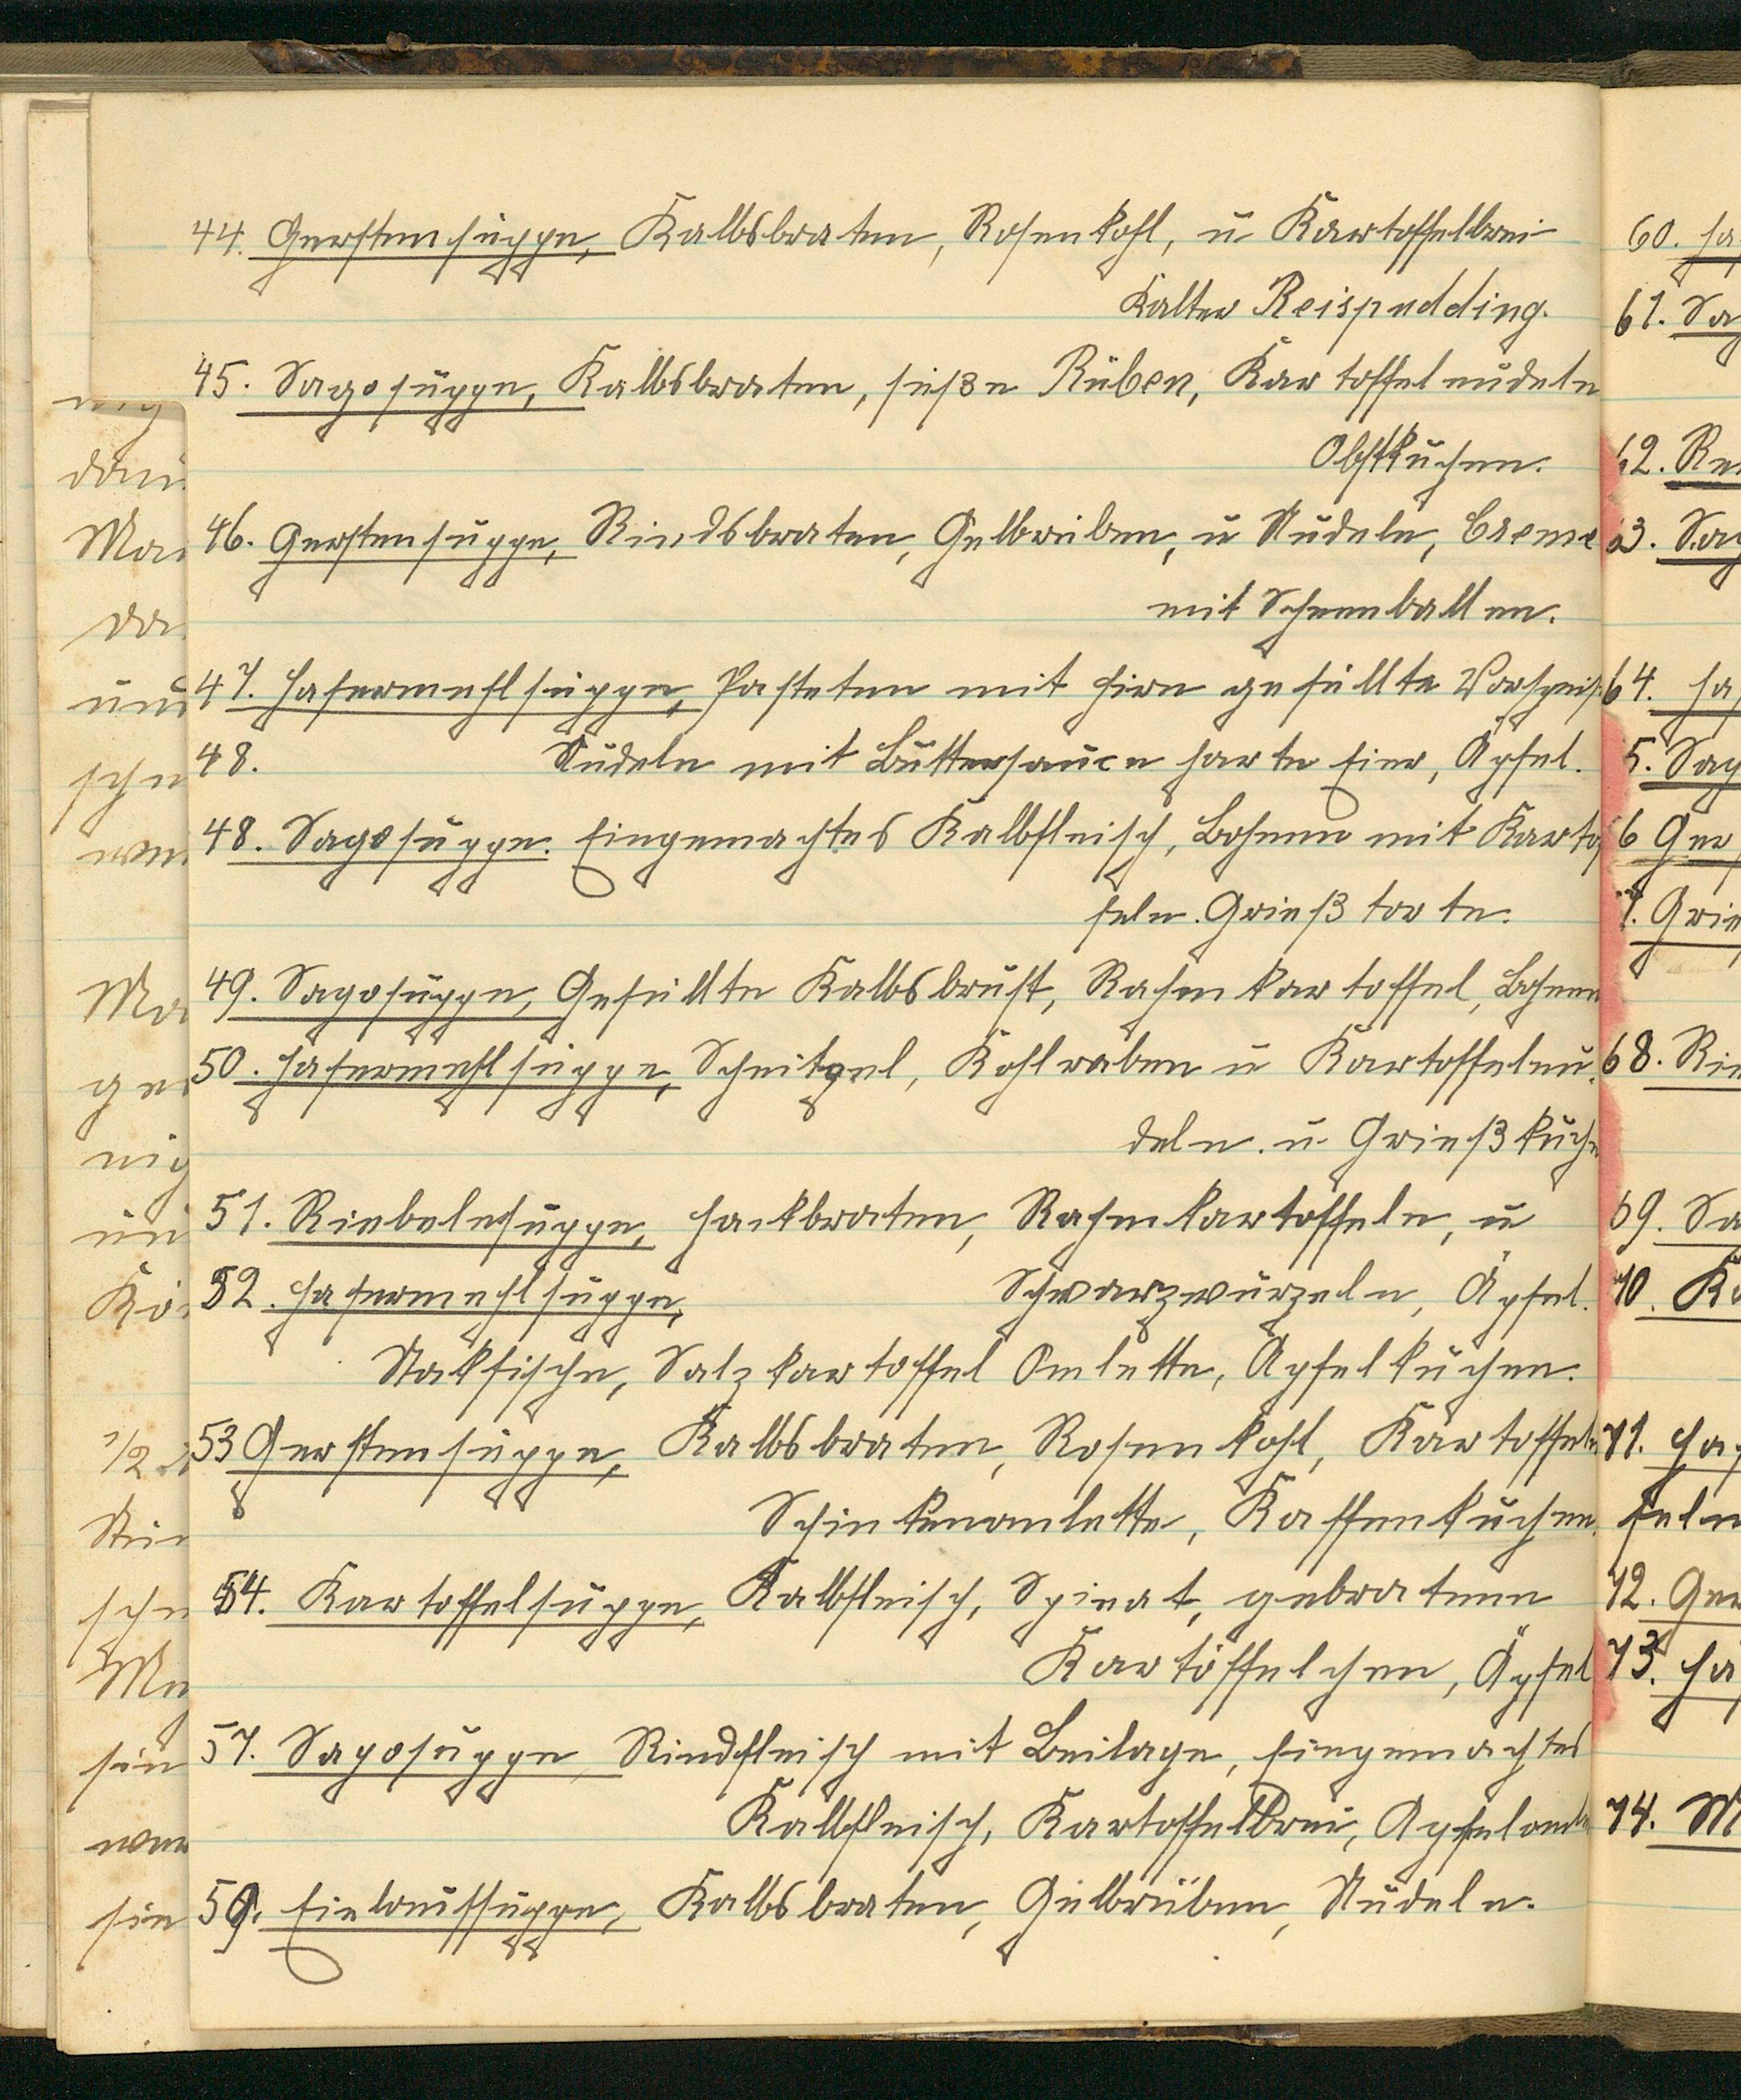 44. Gerstensuppe, Kalbsbraten, Rosenkohl, u Kartoffelbrei
Kalter Reispudding.
45. Sagosuppe, Kalbsbraten, süße Rüben, Kartoffelnudeln
Obstkuchen.
46. Gerstensuppe, Rindsbraten, Gelbrüben, u Nudeln, Creme
mit Schneeballen.
47. Hafermehlsuppe, Pasteten mit Hirn gefüllte Vorspeis
48. Nudeln mit Buttersauce harte Eier, Äpfel.
48. Sagosuppe. Eingemachtes Kalbfleisch, Bohnen mit Kartof
feln. Grießtorte.
49. Sagosuppe, Gefüllte Kalbsbrust, Rahmkartoffel, Bohnen
50. Hafermehlsuppe, Schnitzel, Kohlraben u Kartoffelnu
deln. u Grießkuch
51. Riebelesuppe, Hackbraten, Rahmkartoffeln, u
52. Hafermehlsuppe, Schwarzwurzeln, Äpfel.
Stokfische, Salzkartoffel Omlette, Apfelkuchen.
53 Gerstensuppe, Kalbsbraten, Rosenkohl, Kartoffeln
Schinkenomlette, Kaffeekuchen.
54. Kartoffelsuppe, Kalbfleisch, Spinat, gebratene
Kartöffelchen, Äpfel
57. Sagosuppe, Rindfleisch mit Beilage, Eingemachtes
Kalbfleisch, Kartoffelbrei, Apfelomle
59. Einlaufsuppe, Kalbsbraten, Gelbrüben, Nudeln.
60. Ha
61. Sag
62. Rei
63. Sag
64. Ha
5. Sag
6 Ger
7. Grie
68. Rie
69. Sa
70. Ka
71. Ha
feln
72. Ger
73. Ha
74. M